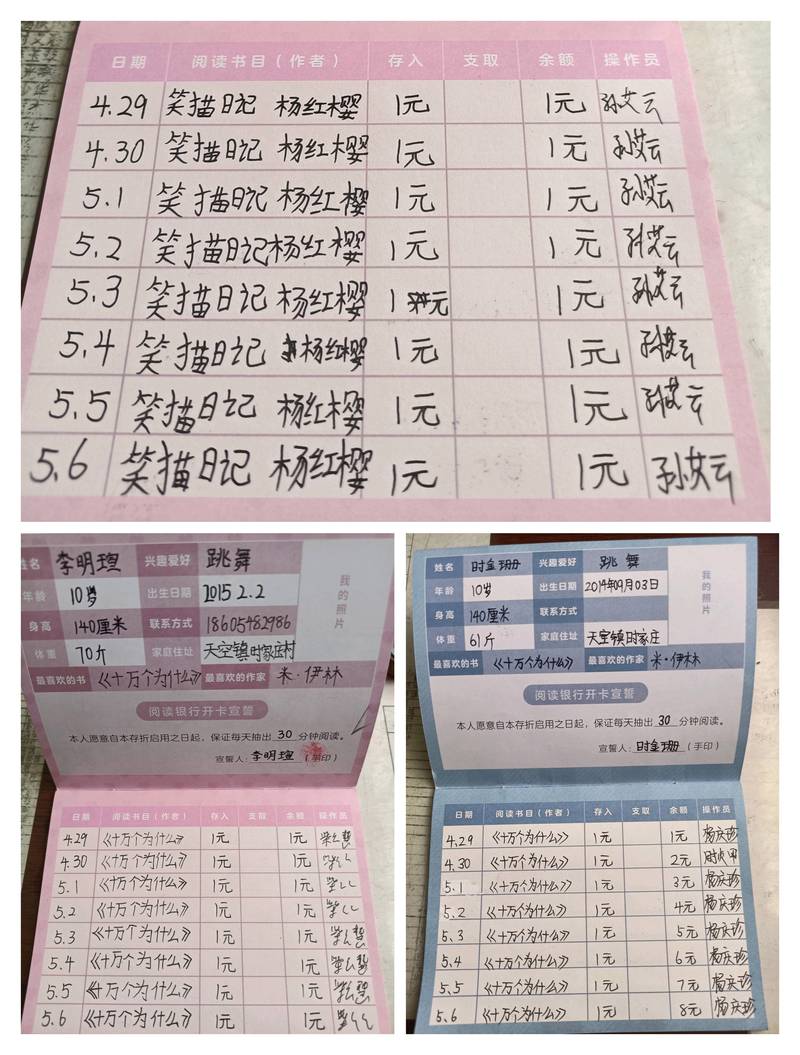 日期 阅读书目(作者) 存入 支取 余额 操作员
4.29 笑猫日记 杨红樱 1元 1元 孙艾云
4.30 笑猫日记 杨红樱 1元 1元 孙艾云
5.1 笑猫日记 杨红樱 1元 1元 孙艾云
5.2 笑猫日记 杨红樱 1元 1元 孙艾云
5.3 笑猫日记 杨红樱 1元 1元 孙艾云
5.4 笑猫日记 杨红樱 1元 1元 孙艾云
5.5 笑猫日记 杨红樱 1元 1元 孙艾云
5.6 笑猫日记 杨红樱 1元 1元 孙艾云
姓名 李明瑄 兴趣爱好 跳舞
年龄 10岁 出生日期 2015.2.2
身高 140厘米 联系方式 18605482986
体重 70斤 家庭住址 天空镇时家庄村
我的照片
最喜欢的书 《十万个为什么》 最喜欢的作家 米·伊林
阅读银行开卡宣誓
本人愿意自本存折启用之日起,保证每天抽出 30 分钟阅读。
宣誓人:李明瑄(手印)
日期 阅读书目(作者) 存入 支取 余额 操作员
4.29 《十万个为什么》 1元 1元
4.30 《十万个为什么》 1元 1元
5.1 《十万个为什么》 1元 1元
5.2 《十万个为什么》 1元 1元
5.3 《十万个为什么》 1元 1元
5.4 《十万个为什么》 1元 1元
5.5 《十万个为什么》 1元 1元
5.6 《十万个为什么》 1元 1元
姓名 时金珊 兴趣爱好 跳舞
年龄 10岁 出生日期 2014年09月03日
身高 140厘米 联系方式
体重 61斤 家庭住址 天空镇时家庄
我的照片
最喜欢的书 《十万个为什么》 最喜欢的作家 米·伊林
阅读银行开卡宣誓
本人愿意自本存折启用之日起,保证每天抽出 30 分钟阅读。
宣誓人:时金珊(手印)
日期 阅读书目(作者) 存入 支取 余额 操作员
4.29 《十万个为什么》 1元 1元 杨庆珍
4.30 《十万个为什么》 1元 2元
5.1 《十万个为什么》 1元 3元 杨庆珍
5.2 《十万个为什么》 1元 4元 杨庆珍
5.3 《十万个为什么》 1元 5元 杨庆珍
5.4 《十万个为什么》 1元 6元 杨庆珍
5.5 《十万个为什么》 1元 7元 杨庆珍
5.6 《十万个为什么》 1元 8元 杨庆珍